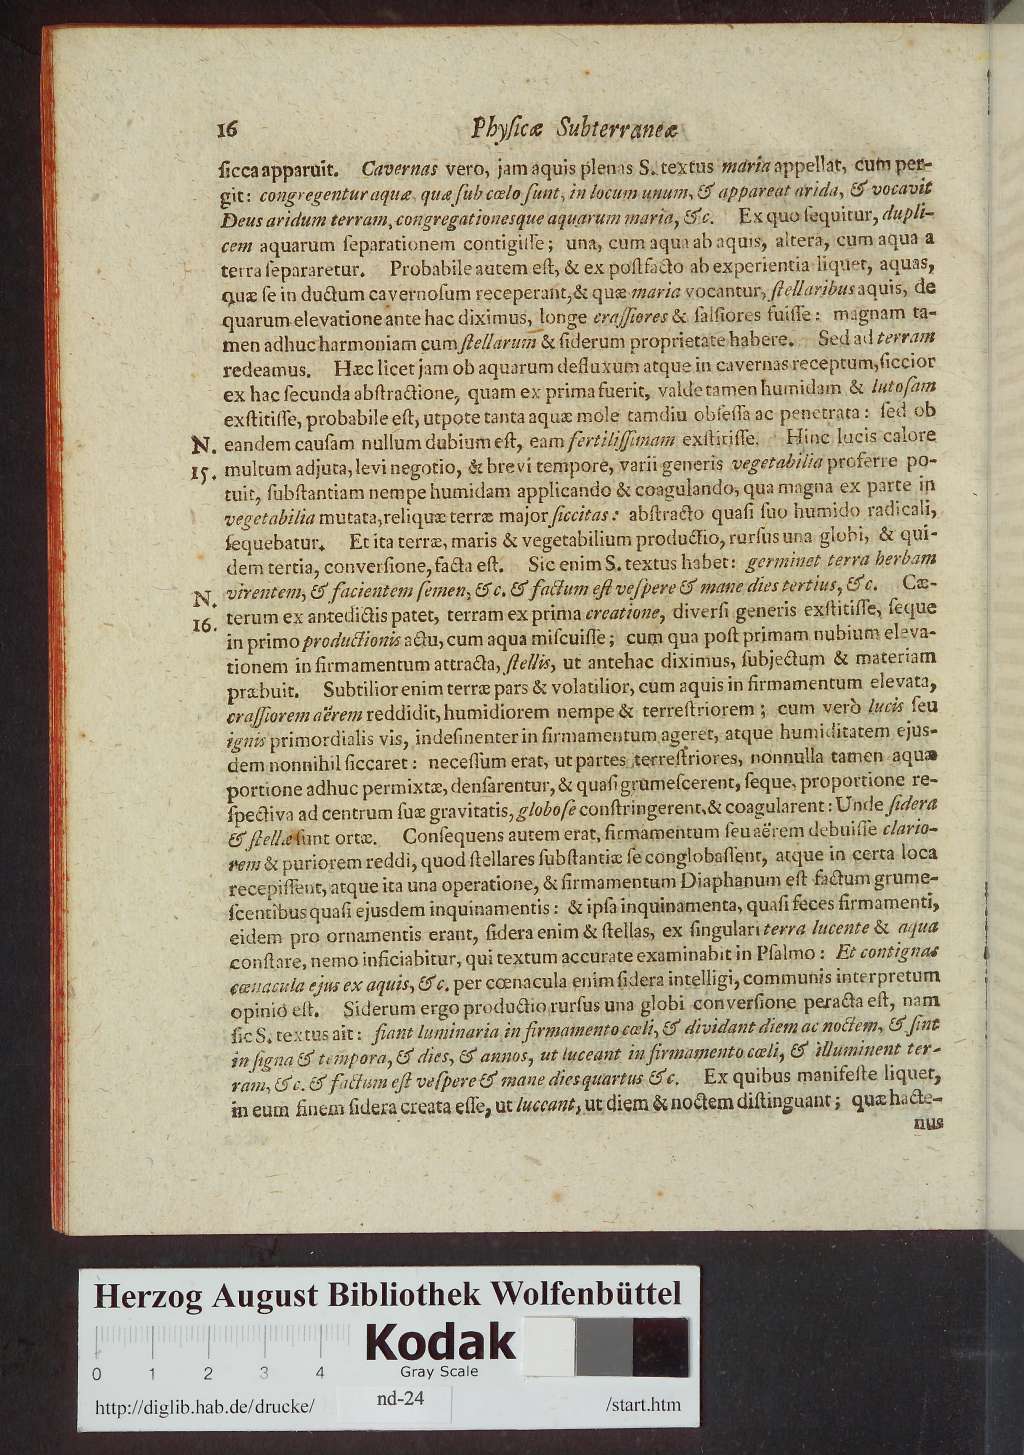 16 Phyſicæ Subterraneæ
ſicca apparuit. Cavernas vero, jam aquis plenas S. textus maria appellat, cum per-
git: congregentur aquæ, quæ ſub cœlo ſunt, in locum unum, & appareat arida, & vocavit
Deus aridum terram, congregationesque aquarum maria, &c. Ex quo ſequitur, dupli-
cem aquarum ſeparationem contigiſſe; una, cum aqua ab aquis, altera, cum aqua a
terra ſepararetur. Probabile autem eſt, & ex poſtfacto ab experientia liquet, aquas,
quæ ſe in ductum cavernoſum receperant, & quæ maria vocantur, ſtellaribus aquis, de
quarum elevatione ante hac diximus, longe craſſiores & ſalſiores fuiſſe: magnam ta-
men adhuc harmoniam cum ſtellarum & ſiderum proprietate habere. Sed ad terram
redeamus. Hæc licet jam ob aquarum defluxum atque in cavernas receptum, ſiccior
ex hac ſecunda abſtractione, quam ex prima fuerit, valde tamen humidam & lutoſam
exſtitiſſe, probabile eſt, utpote tanta aquæ mole tamdiu obſeſſa ac penetrata: ſed ob
N. eandem cauſam nullum dubium eſt, eam fertiliſſimam exſtitiſſe. Hinc lucis calore
15. multum adjuta, levi negotio, & brevi tempore, varii generis vegetabilia proferre po-
tuit, ſubſtantiam nempe humidam applicando & coagulando, qua magna ex parte in
vegetabilia mutata, reliquæ terræ major ſiccitas: abſtracto quaſi ſuo humido radicali,
ſequebatur. Et ita terræ, maris & vegetabilium productio, rurſus una globi, & qui-
dem tertia, converſione, facta eſt. Sic enim S. textus habet: germinet terra herbam
N. virentem, & facientem ſemen, &c. & factum eſt veſpere & mane dies tertius, &c. Cæ-
16. terum ex antedictis patet, terram ex prima creatione, diverſi generis exſtitiſſe, ſeque
in primo productionis actu, cum aqua miſcuiſſe; cum qua poſt primam nubium eleva-
tionem in firmamentum attracta, ſtellis, ut antehac diximus, ſubjectum & materiam
præbuit. Subtilior enim terræ pars & volatilior, cum aquis in firmamentum elevata,
craſſiorem aërem reddidit, humidiorem nempe & terreſtriorem; cum verò lucis ſeu
ignis primordialis vis, indeſinenter in firmamentum ageret, atque humiditatem ejus-
dem nonnihil ſiccaret: neceſſum erat, ut partes terreſtriores, nonnulla tamen aquæ
portione adhuc permixtæ, denſarentur, & quaſi grumeſcerent, ſeque, proportione re-
ſpectiva ad centrum ſuæ gravitatis, globoſe conſtringerent, & coagularent: Unde ſidera
& ſtellæ ſunt ortæ. Conſequens autem erat, firmamentum ſeu aërem debuiſſe clario-
rem & puriorem reddi, quod ſtellares ſubſtantiæ ſe conglobaſſent, atque in certa loca
recepiſſent, atque ita una operatione, & firmamentum Diaphanum eſt factum grume-
ſcentibus quaſi ejusdem inquinamentis: & ipſa inquinamenta, quaſi feces firmamenti,
eidem pro ornamentis erant, ſidera enim & ſtellas, ex ſingulari terra lucente & aqua
conſtare, nemo inficiabitur, qui textum accurate examinabit in Pſalmo: Et contignas
cœnacula ejus ex aquis, &c. per cœnacula enim ſidera intelligi, communis interpretum
opinio eſt. Siderum ergo productio rurſus una globi converſione peracta eſt, nam
ſic S. textus ait: fiant luminaria in firmamento cœli, & dividant diem ac noctem, & ſint
in ſigna & tempora, & dies, & annos, ut luceant in firmamento cœli, & illuminent ter-
ram, &c. & factum eſt veſpere & mane dies quartus &c. Ex quibus manifeſte liquet,
in eum finem ſidera creata eſſe, ut luceant, ut diem & noctem diſtinguant; quæ hacte-
nus
Herzog August Bibliothek Wolfenbüttel
Kodak
0 1 2 3 4 Gray Scale
http://diglib.hab.de/drucke/ nd-24 /start.htm